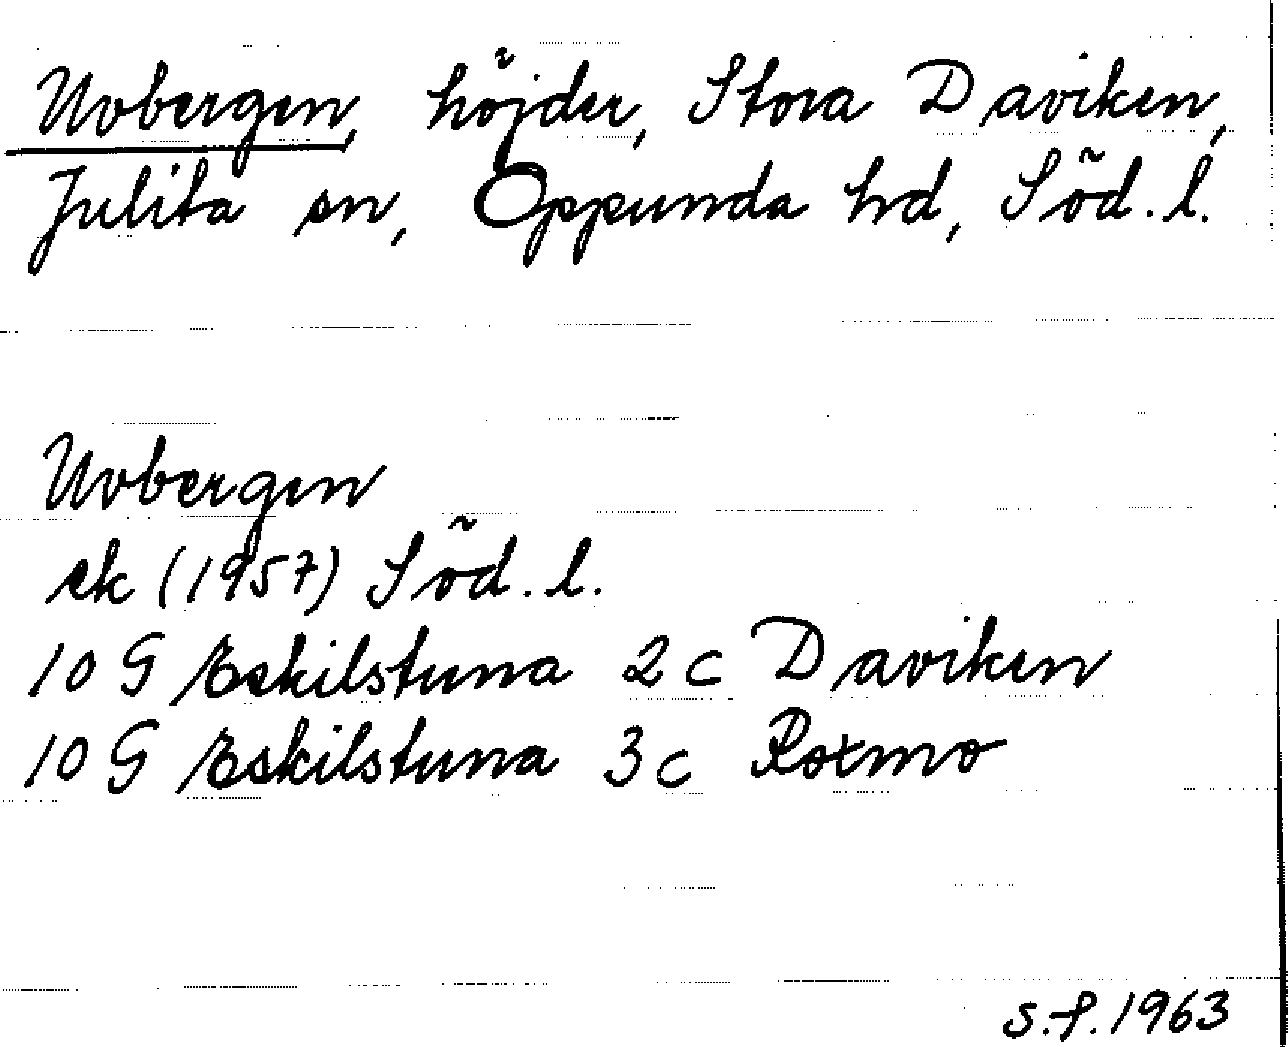 Uvbergen, höjder, Stora Daviken,
Julita sn, Oppunda hd, Söd. l.
Uvbergen
ek (1957) Söd. l.
10 G Eskilstuna 2 c Daviken
10 G Eskilstuna 3 c Rotmo
S.-f. 1963